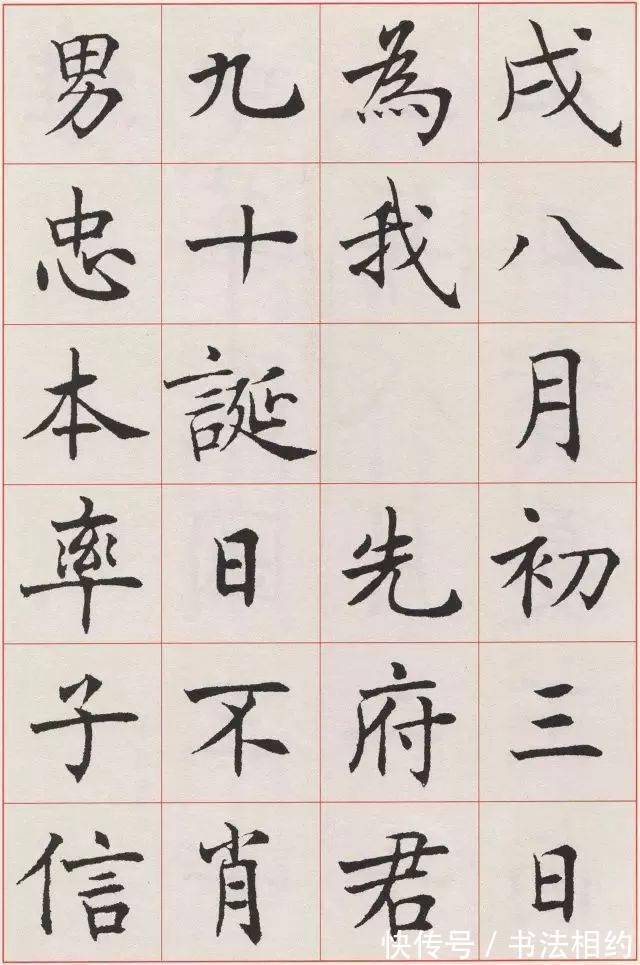 戌八月初三日
為我先府君
九十誕日不肖
男忠本率子信
快传号/书法相约